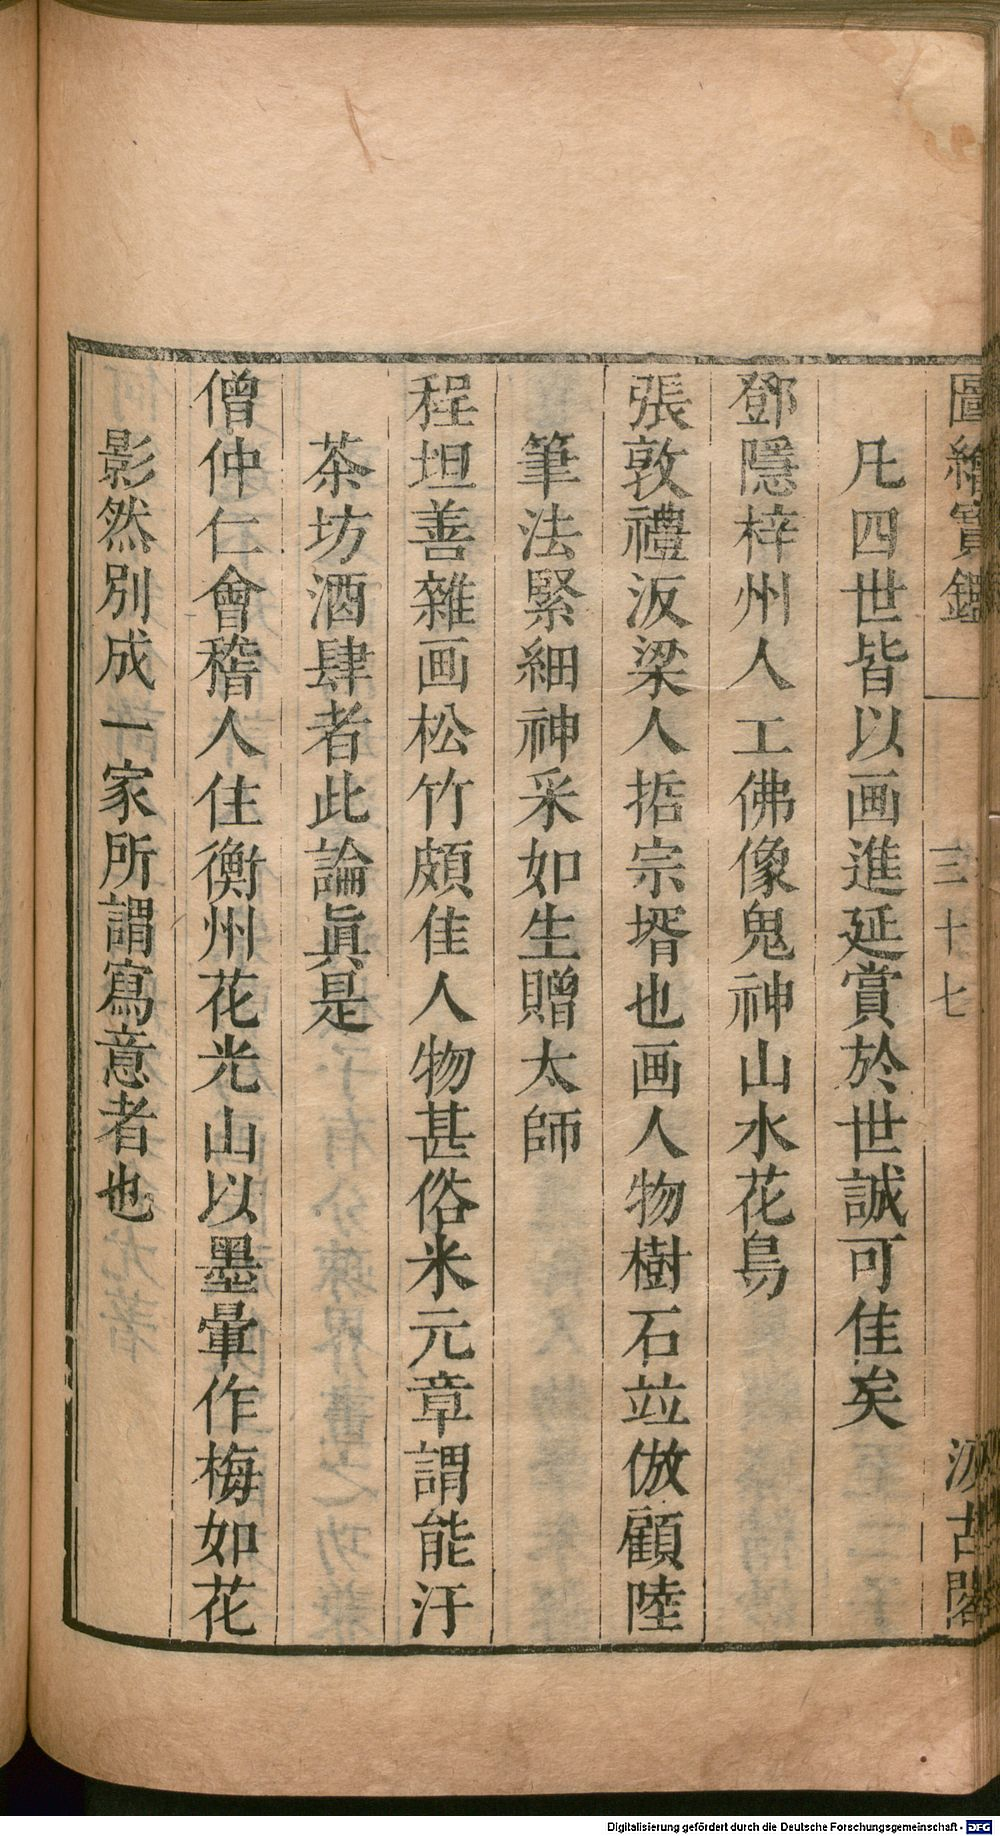 圖繪寶鑑 三十七 汲古閣
凡四世皆以画進延賞於世誠可佳矣
鄧隱梓州人工佛像鬼神山水花鳥
張敦禮汳梁人括宗壻也画人物樹石竝倣顧陸
筆法緊細神采如生贈太師
程坦善雜画松竹頗佳人物甚俗米元章謂能汙
茶坊酒肆者此論眞是
僧仲仁會稽人住衡州花光山以墨暈作梅如花
影然別成一家所謂寫意者也
Digitalisierung gefördert durch die Deutsche Forschungsgemeinschaft - DFG